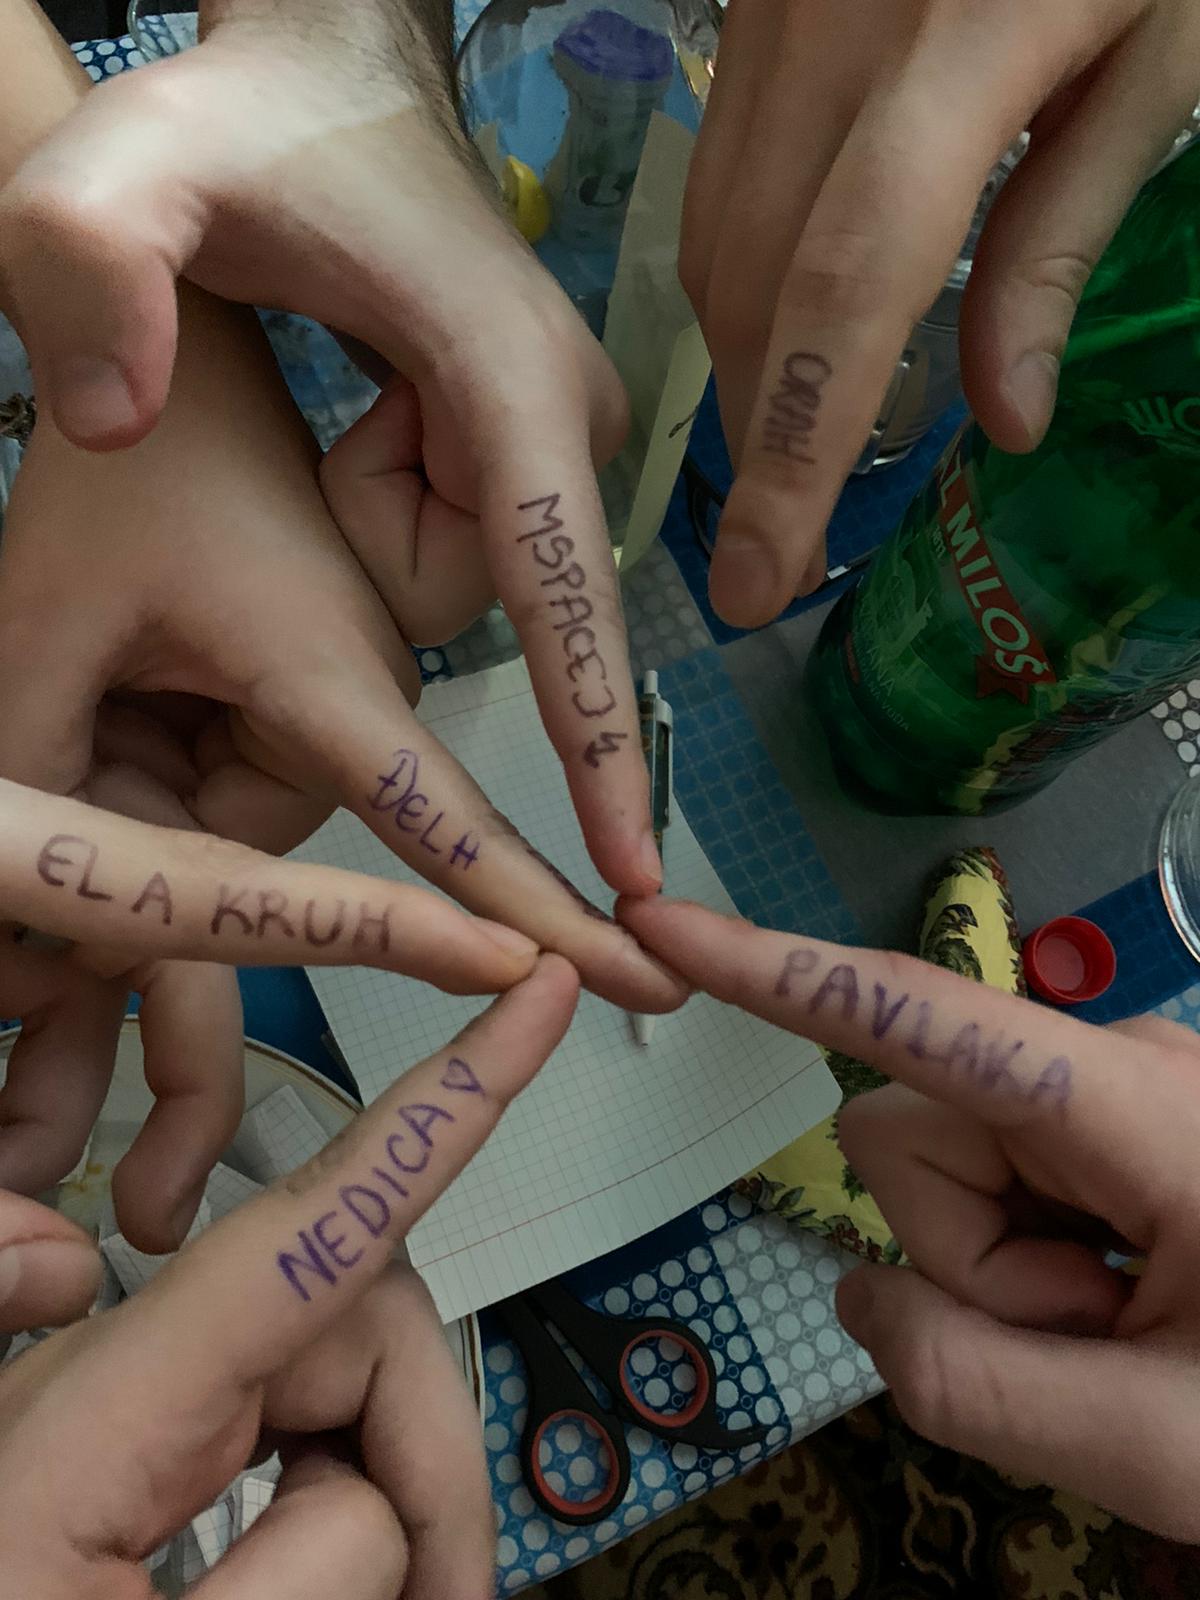 ORAH
MSPACEJ
ĐELH
ELA KRUH
PAVLAKA
NEDICA
MILOŠ